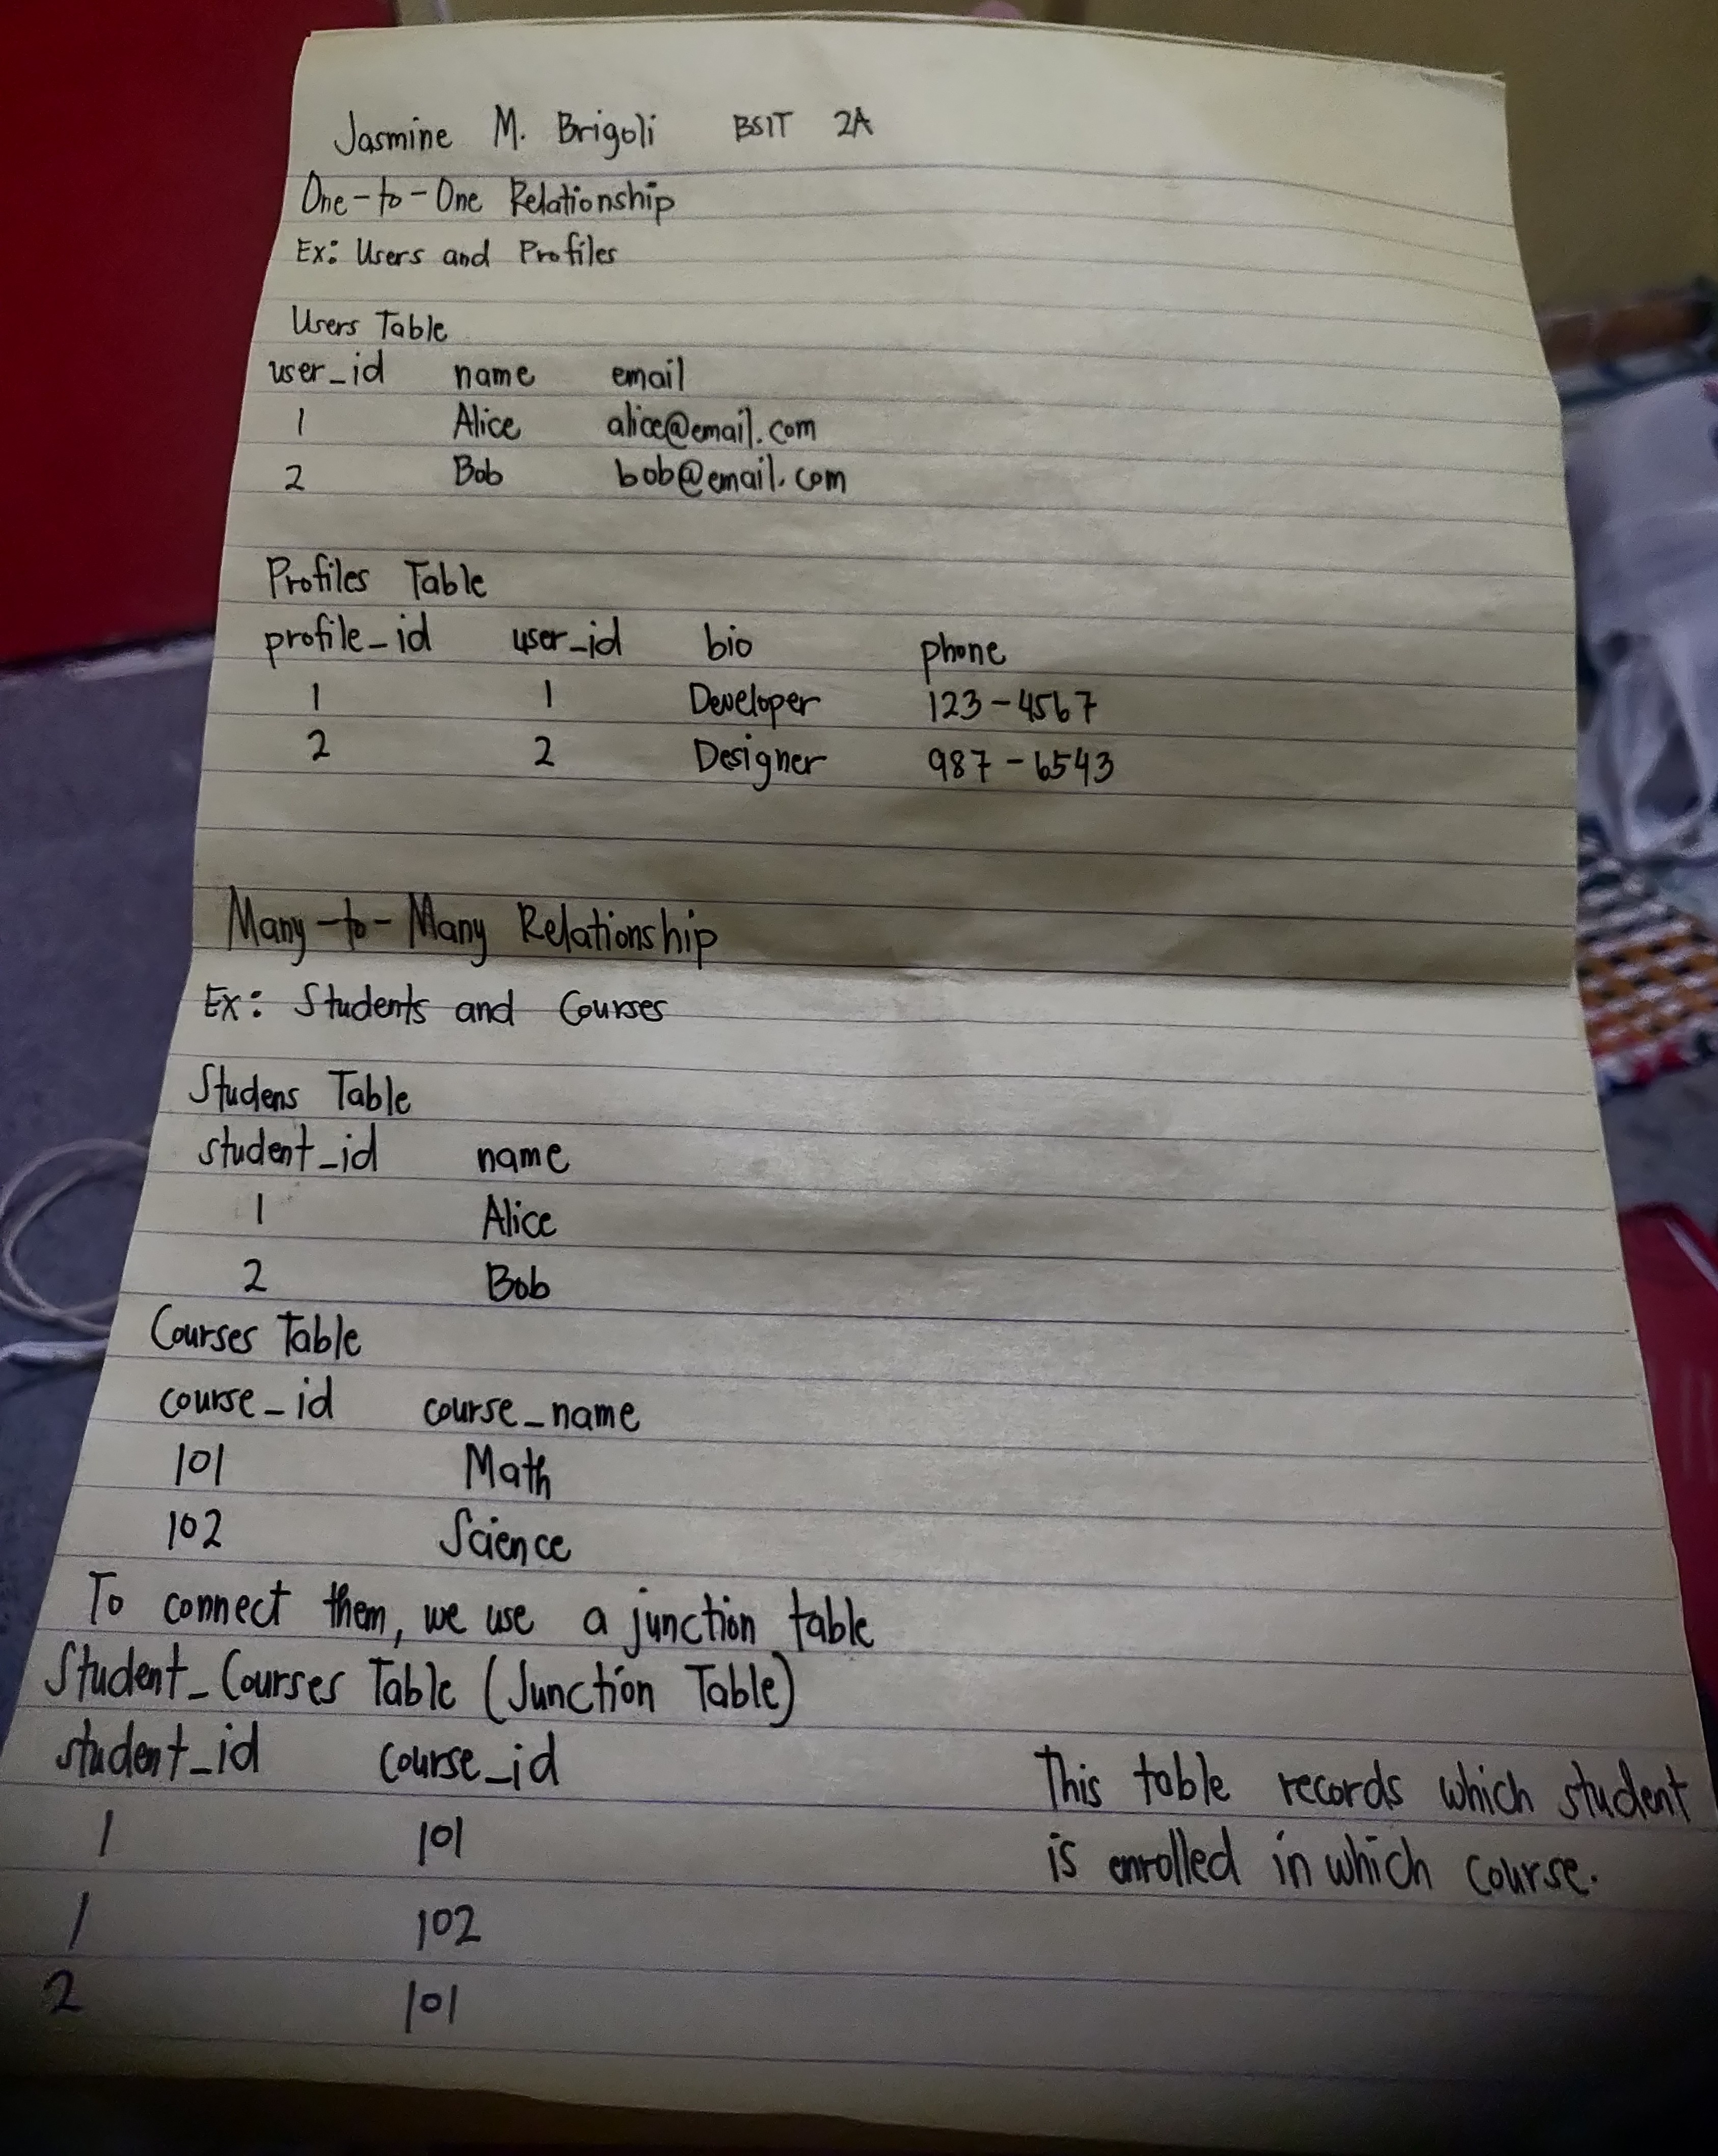 Jasmine M. Brigoli BSIT 2A
One-to-One Relationship
Ex: Users and Profiles
Users Table
user_id name email
1 Alice alice@email.com
2 Bob bob@email.com
Profiles Table
profile_id user_id bio phone
1 1 Developer 123-4567
2 2 Designer 987-6543
Many-to-Many Relationship
Ex: Students and Courses
Studens Table
student_id name
1 Alice
2 Bob
Courses Table
course_id course_name
101 Math
102 Science
To connect them, we use a junction table
Student_Courses Table (Junction Table)
student_id course_id
1 101
1 102
2 101
This table records which student
is enrolled in which course.